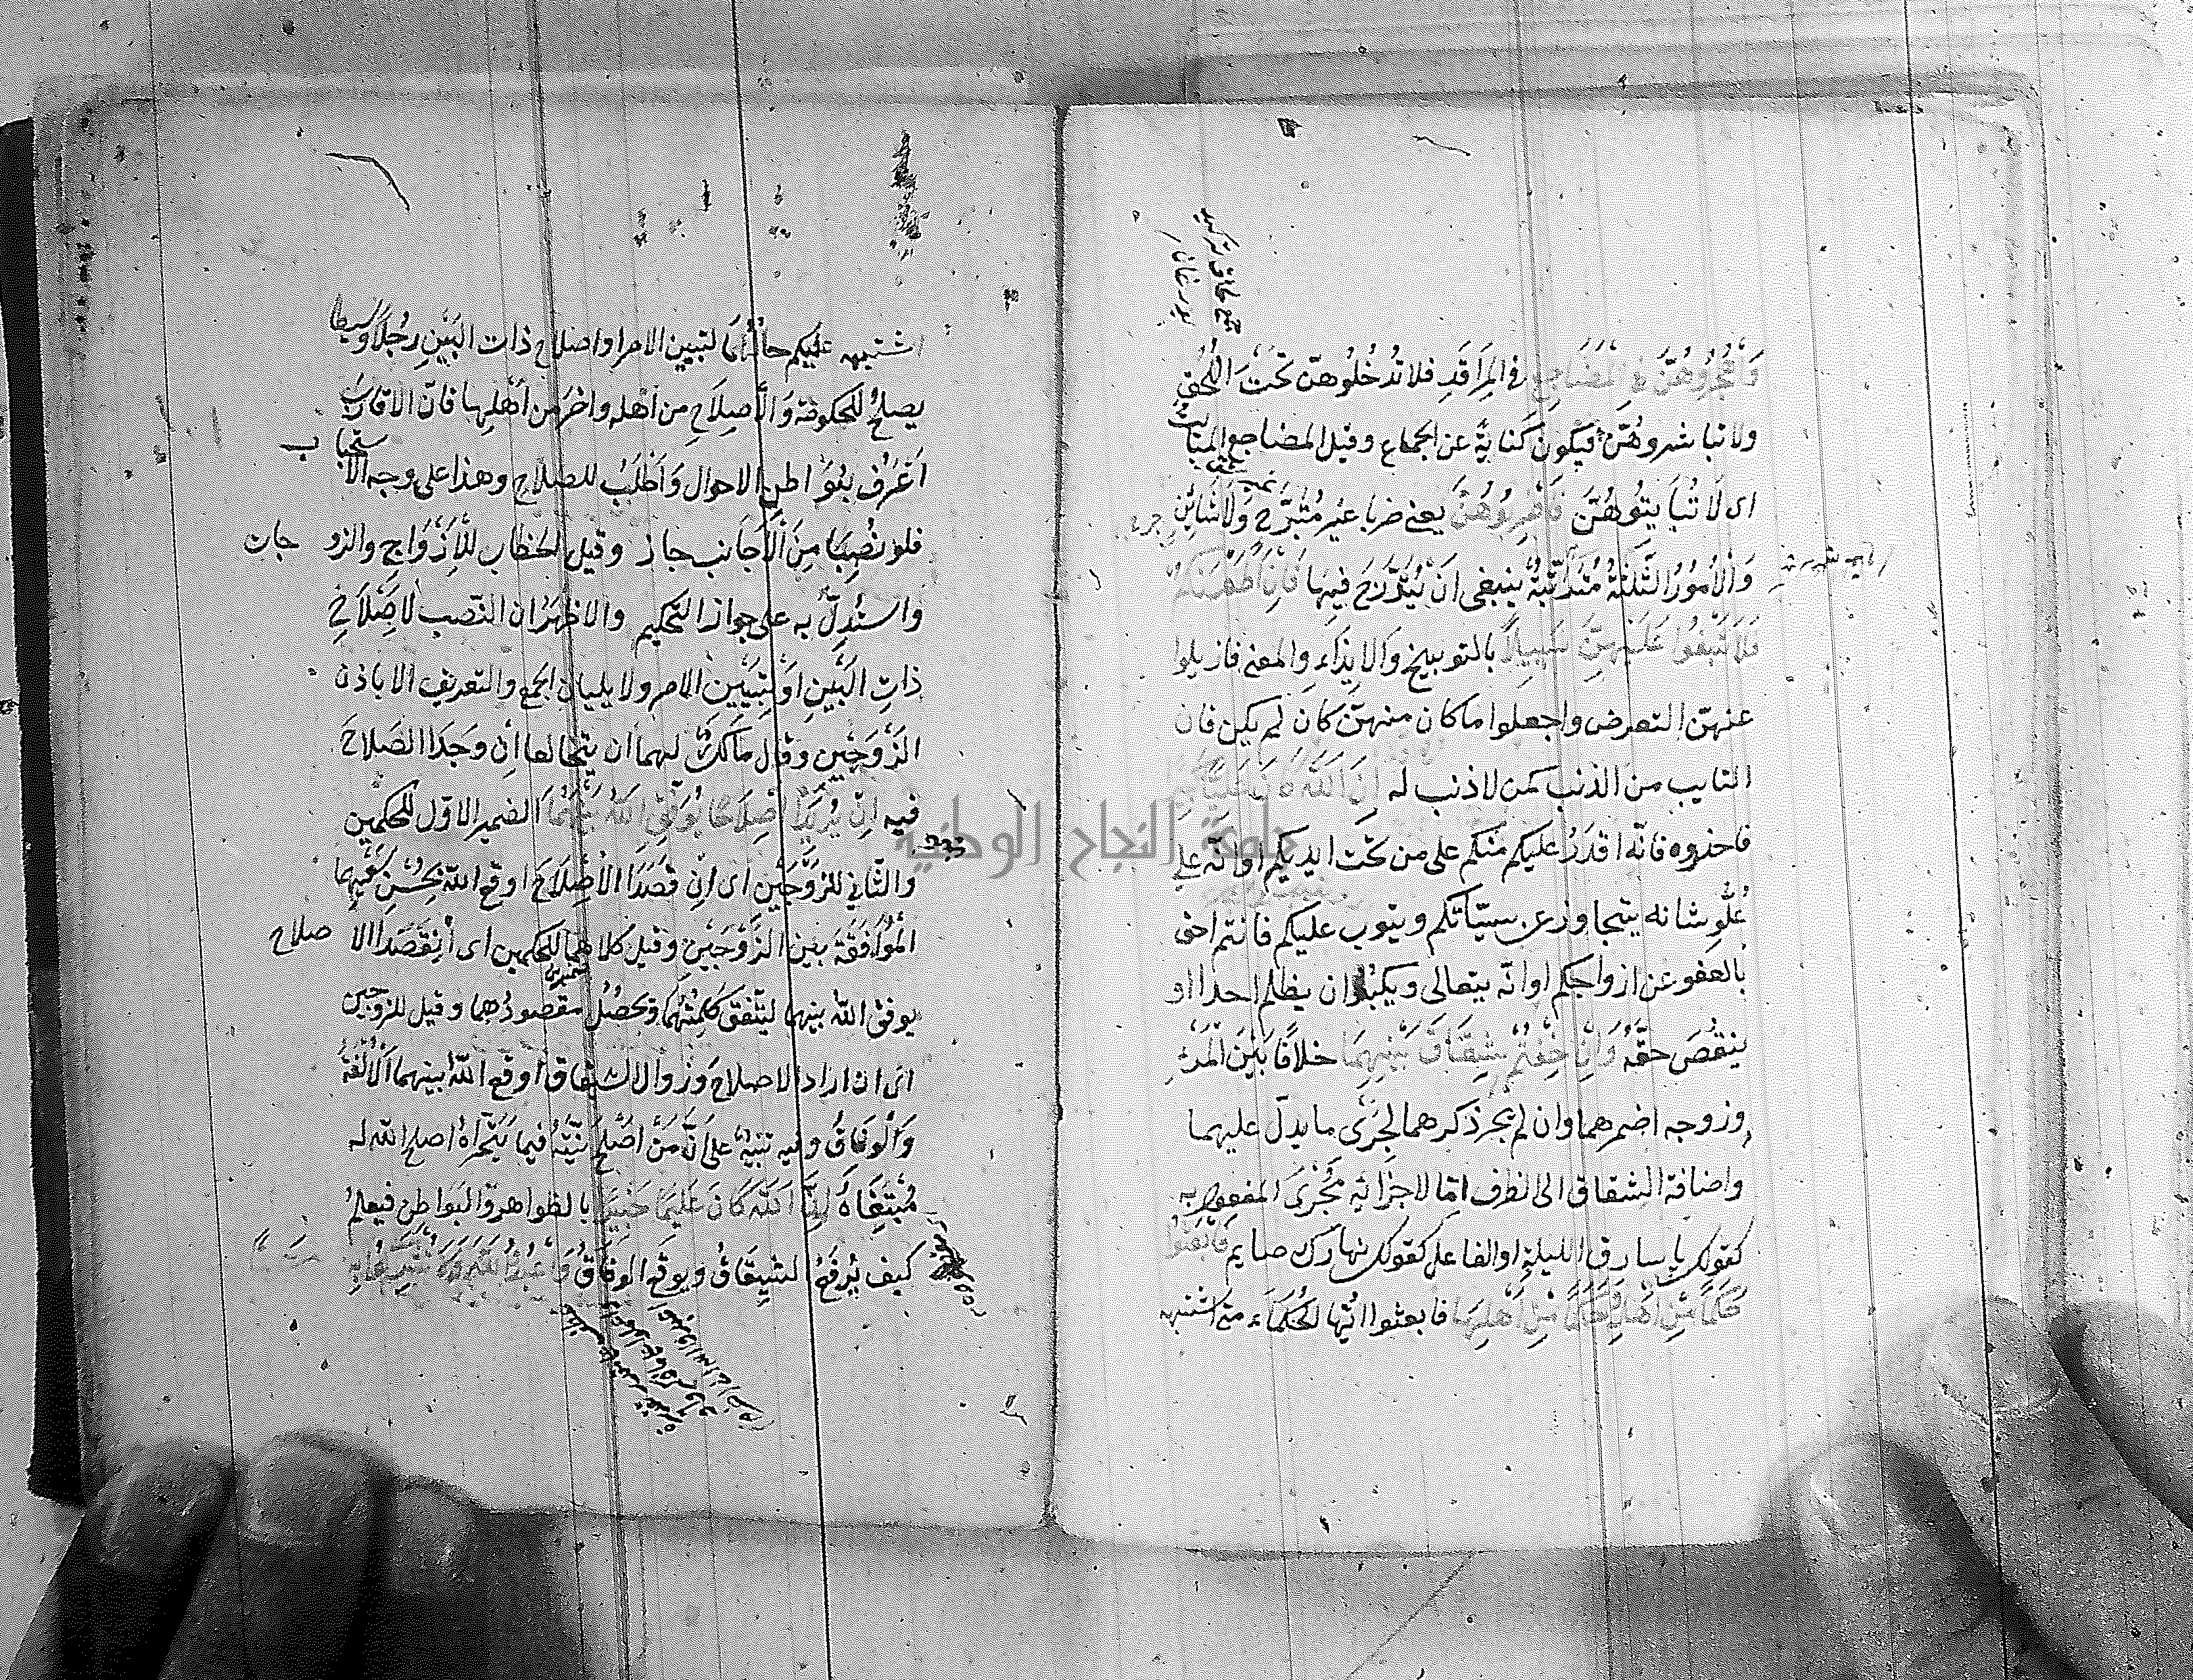 وَاهْجُرُوهُنَّ فِي الْمَضَاجِعِ فى المَرَاقَدِ فلا تُدْخُلُوهنّ تحْتَ اللُّحُفِ
ولا تباشروهُنَّ فيكون كنايةً عن الجماع وقيل المضاجع المبايت
اى لا تُبَايِتُوهُنّ فَاضْرِبُوهُنَّ يعنى ضربا غير مُبَرَّح وَلَا شَائِنٍ
وَالأمُورُ الثَّلثةُ مُتَرتّبةٌ ينبغى انْ يُتَدَرَّجَ فِيهَا فَإنْ أَطَعْنَكُمْ
فَلَا تَبْغُوا عَلَيْهِنَّ سَبِيلًا بالتوبيخ وَالايذَاءِ والمعنى فازيلوا
عنهنّ التعرض واجعلوا ما كان منهنّ كان لم يكن فان
التايب من الذنب كمن لا ذنب له إنَّ اللَّهَ كَانَ عَلِيًّا
فاحذروه فانّه اقدَرُ عليكم منكم على من تحت ايديكم او انّه على
عُلُوِّ شانه يتجاوز عن سيّاتكم ويتوب عليكم فانتم احق
بالعفو عن ازواجكم او انّه يتعالى ويكبُر ان يظلم احدا او
ينقُصَ حقَّهُ وَإِنْ خِفْتُمْ شِقَاقَ بَيْنِهِمَا خلافًا بَيْن المَرْءِ
وزوجه اضمرهما وان لم يجر ذكرهما لجَرْى ما يدلّ عليهما
واضافة الشقاق الى الظرف امّا لاجرائه مُجْرَى المفعول به
كقولك يا سارق الليلةِ او الفاعل كقولك نهارك صايم فَابْعَثُوا
حَكَمًا مِّنْ أَهْلِهِ وَحَكَمًا مِّنْ أَهْلِهَا فابعثوا ايّها الحُكّماء متى اشتبه
اشتبه عليكم حالُهُمَا لتبيين الامر او اصلاح ذات البَيْنِ رجُلًا وسيطا
يصلحُ للحكومة وَالْأصِلَاحِ من اهله واخَرَ من أهْلِها فانّ الاقارب
اَعْرَفُ بِبَوَاطن الاحوال وَاَطْلَبُ للصلاح وهذا على وجه الاستحباب
فلو نُصِبَا مِنَ الْأجَانب جاز وقيل الخطاب للأزْوَاج والزوجات
واستُدِلّ به على جواز التحكيم والاظهرُ ان النّصب لِاصْلَاحِ
ذات البَيْنِ اوْ لِتَبْيِين الامر ولا يليان الجمع والتعريف الا باذن
الزَّوجَيْنِ وقال مالكٌ لهما ان يتخالعا أن وَجَدَا الصَلاحَ
فيه إن يُرِيدَا إِصْلَاحًا يُوَفِّقِ اللَّهُ بَيْنَهُمَا الضمير الاوّل للحكمين
والثّاني للزوجَيْنِ اى إنْ قصَدَا الْاصْلَاحَ اوقع اللّه بحُسْنِ سَعْيِهِمَا
المُوَافَقَةَ بين الزَّوْجَيْنِ وقيل كلاهما للحكمين اى أن قصَدَا الاصلاح
يوفق اللّه بينهما ليتّفقَ كَلِمَتُهُمَا وتحصُلَ مقصودُهما وقيل للزوجين
اى ان ارادا الاصلاحَ وزوال الشقاق اوقع اللّهُ بينهما الْألْفَةَ
وَالْوِفَاقَ وفيه تنبيهٌ على أنّ مَنْ اصْلَحَ نيَّتَهُ فيما يَتَحَرّاهُ اصلح اللّه له
مُبْتَغَاهُ إِنَّ اللَّهَ كَانَ عَلِيمًا خَبِيرًا بالظواهر وَالبَوَاطن فيعلمُ
كيف يُرفَعُ الشِقَاقُ ويوقع الوِفَاقُ وَاعْبُدُوا اللَّهَ وَلَا تُشْرِكُوا بِهِ
جامعة النجاح الوطنية